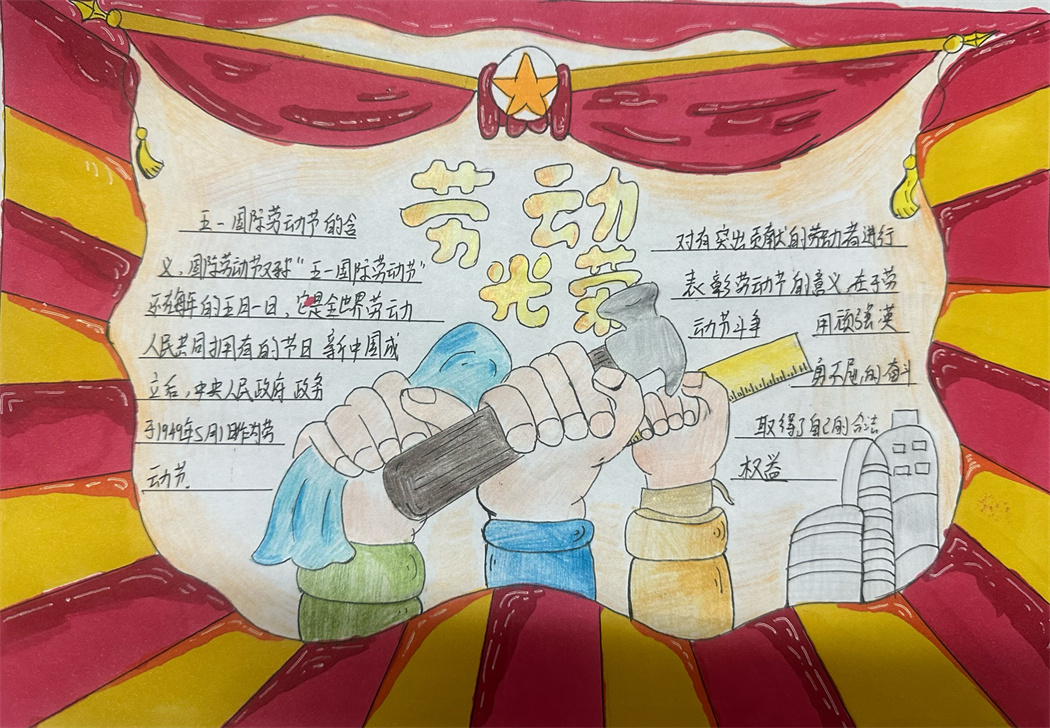 劳动
光荣
五一国际劳动节的含
义,国际劳动节又称"五一国际劳动节"
每年的五月一日,它是全世界劳动
人民共同拥有的节日 新中国成
立后,中央人民政府 政务
于1949年5月1日作为劳
动节.
对有突出贡献的劳动者进行
表彰劳动节的意义在于劳
动节斗争 用顽强英
勇不屈的奋斗
取得了自己的合法
权益